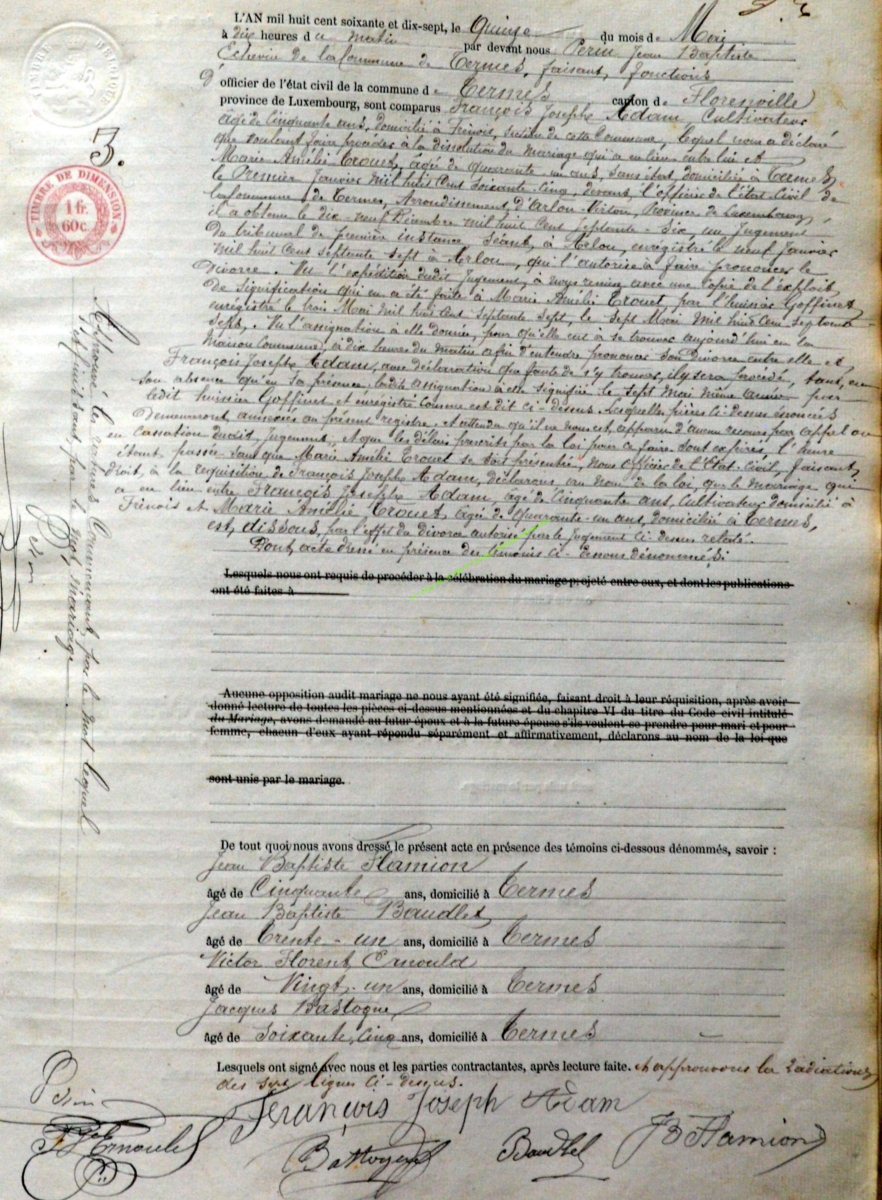 L'AN mil huit cent soixante et dix-sept, le Quinze du mois de Mai
à dix heures du matin par devant nous Perin Jean Baptiste
Echevin de la Commune de Termes, faisant, fonctions
d'officier de l'état civil de la commune de Termes canton de Florenville
province de Luxembourg, sont comparus François Joseph Adam, Cultivateur
âgé de Cinquante ans, domicilié à Frénois, section de cette Commune, lequel nous a déclaré
que voulant faire procéder à la dissolution du mariage qui a eu lieu entre lui et
Marie Amélie Trouet, âgée de quarante-un ans, sans état, domiciliée à Termes
le Premier Janvier mil huit Cent Soixante Cinq, devant l'officier de l'état Civil de
la Commune de Termes, Arrondissement d'Arlon-Virton, Province de Luxembourg,
il a obtenu le dix-neuf Décembre mil huit Cent Septante-Six, un Jugement
du tribunal de première instance Séant à Arlon, enregistré le neuf Janvier
mil huit Cent Septante Sept à Arlon, qui l'autorise à faire prononcer le
divorce. Vu l'expédition dudit Jugement, à nous remise avec une Copie de l'exploit
de signification qui en a été faite à Marie Amélie Trouet, par l'huissier Goffinet
enregistré le trois Mai mil huit Cent Septante Sept, le Sept Mai mil huit Cent Septante
Sept. Vu l'assignation à elle donnée, pour qu'elle eut à se trouver aujourd'hui en la
Maison Commune, à dix heures du matin afin d'entendre prononcer son Divorce entre elle et
François Joseph Adam, avec déclaration que faute de s'y trouver, il y sera procédé, tant, en
son absence qu'en sa présence, ladite assignation à elle signifiée le sept mai même année par
ledit huissier Goffinet et enregistré comme est dit ci-dessus. Lesquelles pièces ci-dessus énoncées
Demeureront annexées au présent registre. et attendu qu'il ne nous est, apparu d'aucun recours par appel ou
en Cassation dudit, Jugement, et que les délais prescrits par la loi pour ce faire sont expirés, l'heure
étant passée sans que Marie Amélie Trouet se soit présentée, Nous officier de l'Etat-Civil, faisant
droit, à la requisition de François Joseph Adam, déclarons au nom de la loi, que le mariage qui
a eu lieu entre François Joseph Adam, âgé de Cinquante ans, Cultivateur domicilié à
Frénois et Marie Amélie Trouet, âgée de quarante-un ans, domiciliée à Termes,
est, dissous, par l'effet du divorce autorisé par le jugement ci-dessus relaté.
Dont, acte dressé en présence des témoins ci-dessous dénommés:
Lesquels nous ont requis de procéder à la célébration du mariage projeté entre eux, et dont les publications
ont été faites à
Aucune opposition audit mariage ne nous ayant été signifiée, faisant droit à leur réquisition, après avoir
donné lecture de toutes les pièces ci-dessus mentionnées et du chapitre VI du titre du Code civil intitulé
du Mariage, avons demandé au futur époux et à la future épouse s'ils veulent se prendre pour mari et pour
femme, chacun d'eux ayant répondu séparément et affirmativement, déclarons au nom de la loi que
sont unis par le mariage.
De tout quoi nous avons dressé le présent acte en présence des témoins ci-dessous dénommés, savoir :
Jean Baptiste Flamion
âgé de Cinquante ans, domicilié à Termes
Jean Baptiste Baudlet
âgé de Trente-un ans, domicilié à Termes
Victor Florent Ernould
âgé de Vingt-un ans, domicilié à Termes
Jacques Bastogne
âgé de Soixante, cinq ans, domicilié à Termes
Lesquels ont signé avec nous et les parties contractantes, après lecture faite. et approuvons la radiation
des sept lignes ci-dessus.
Perin
François Joseph Adam
Ernould
Bastogne
Baudlet
JB Flamion
3.
TIMBRE DE DIMENSION
1 fr.
60c.
Approuvé les ratures Commençant, par le mot lequel
et finissant, par le mot, mariage
Perin